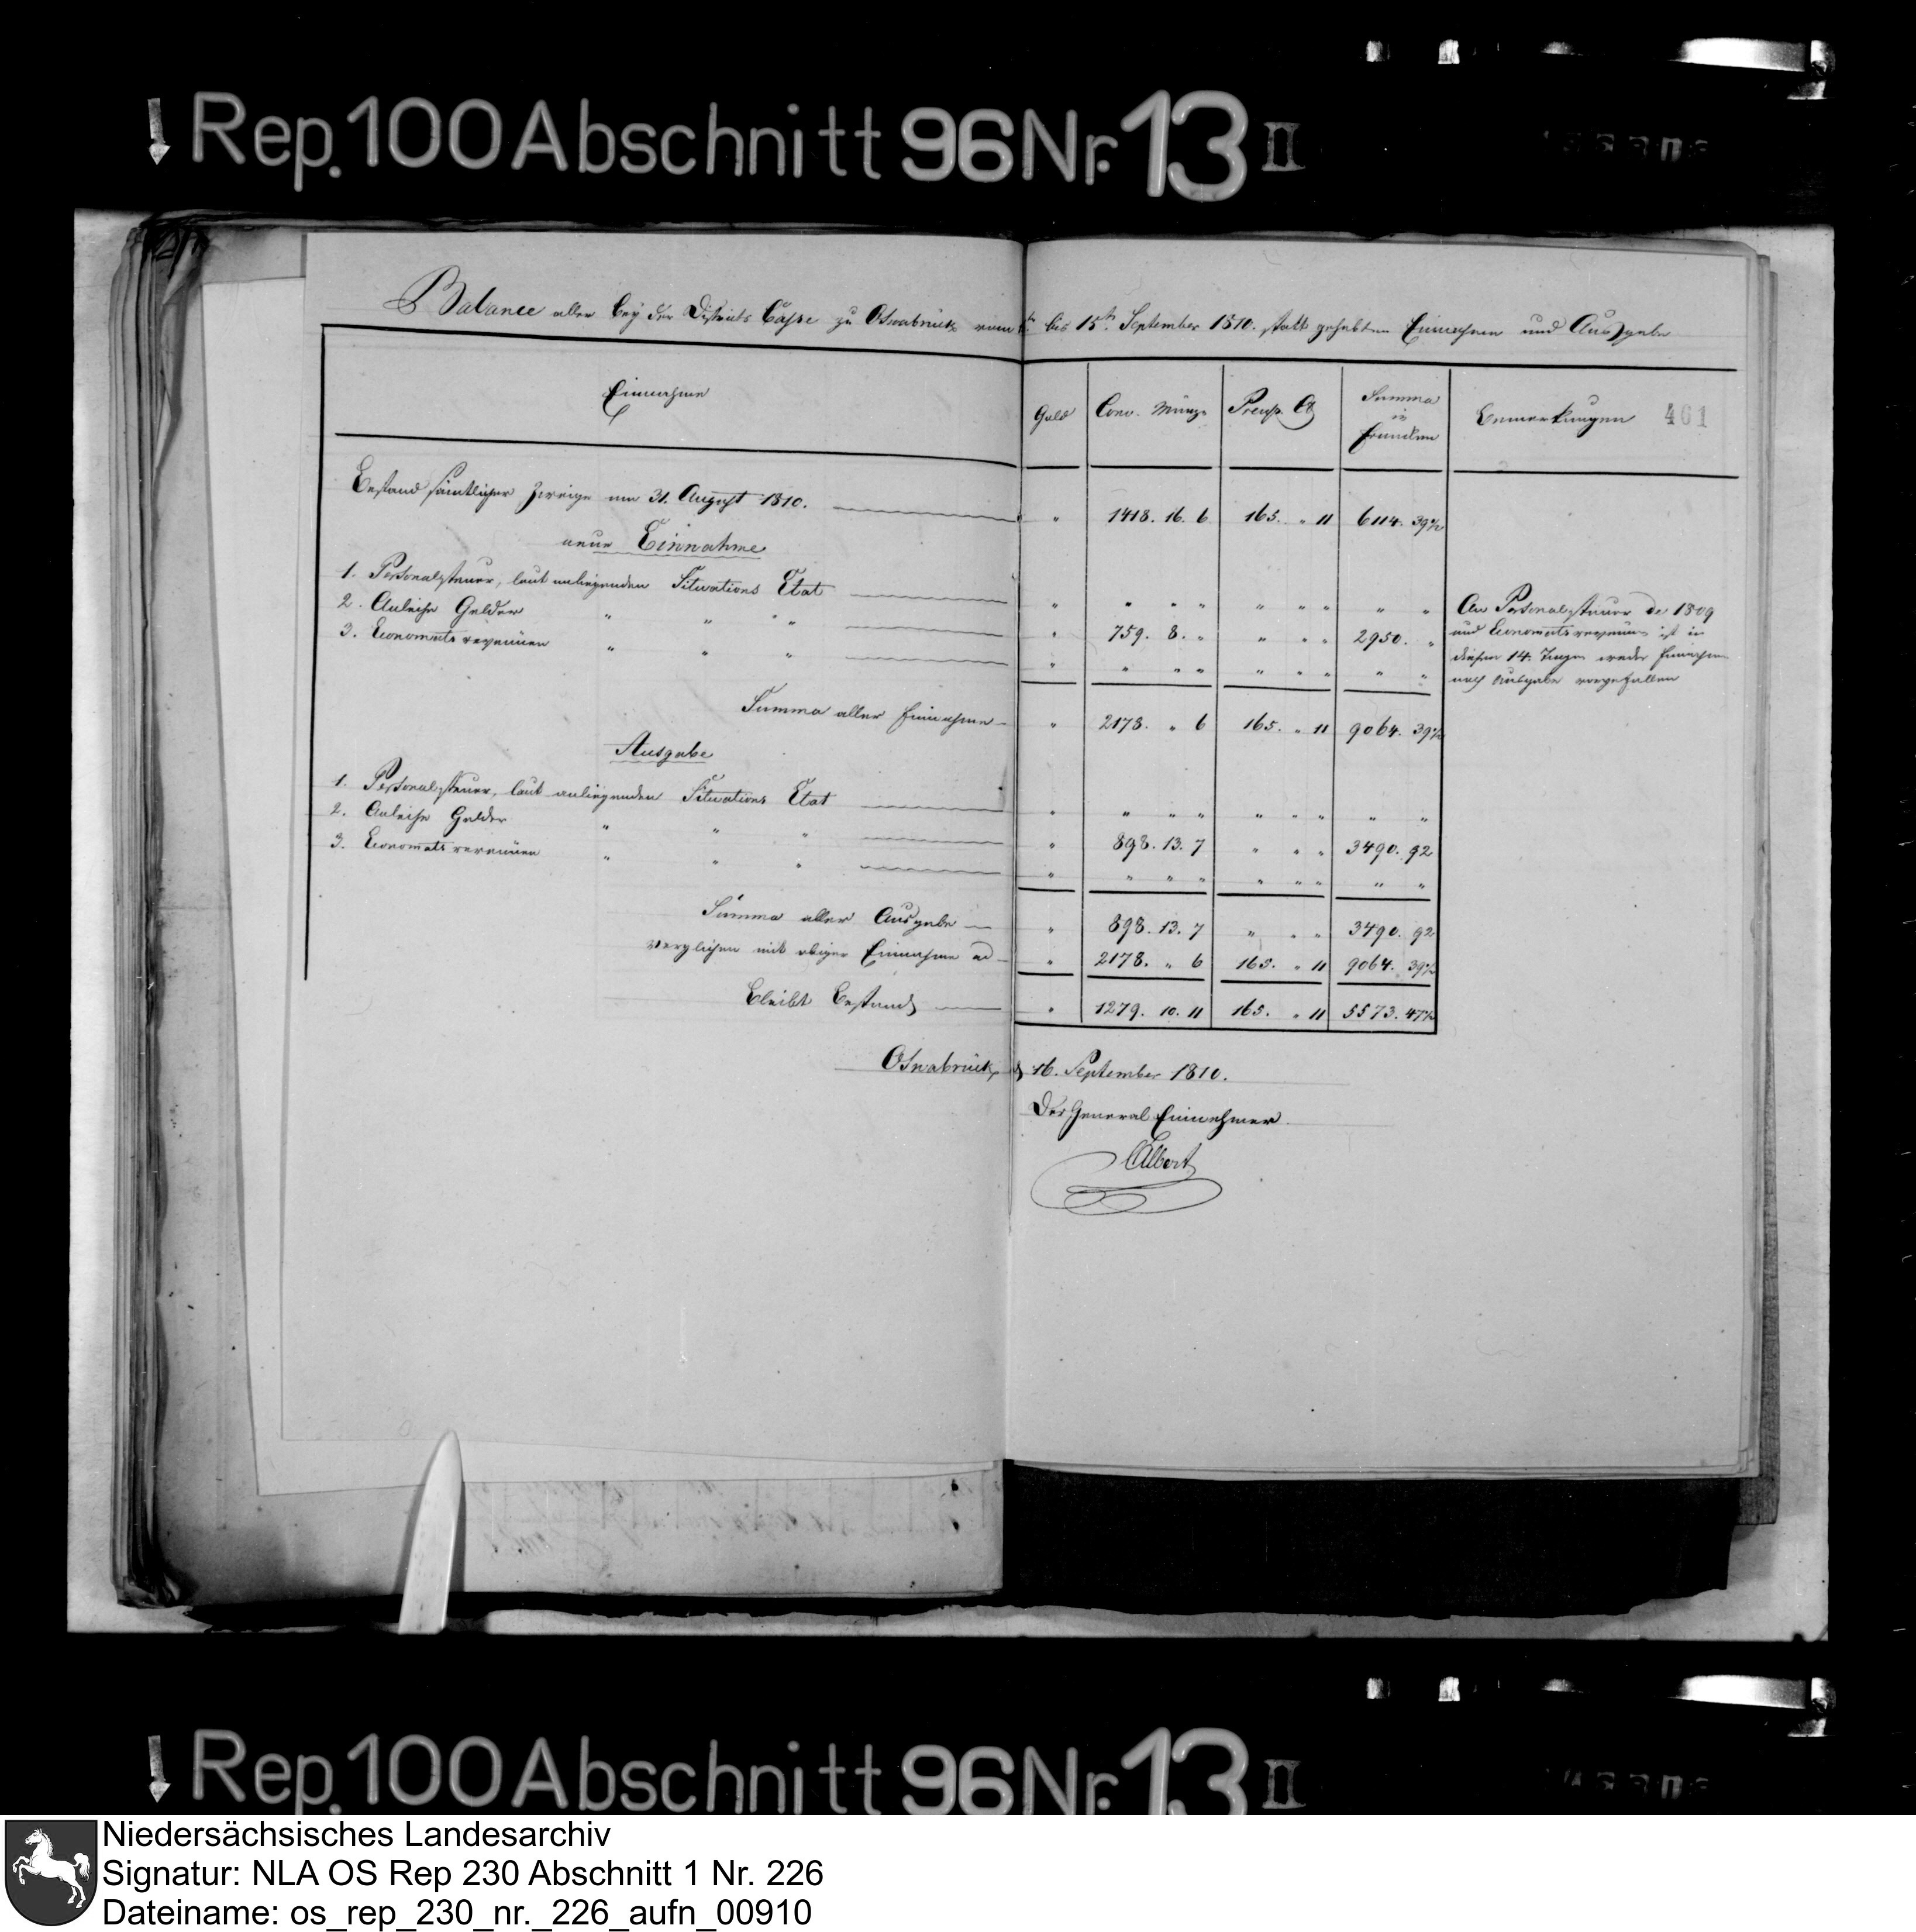 Rep. 100 Abschnitt 96 Nr. 13 II
Balance aller bey der Districts Casse zu Osnabrück vom 1t. bis 15ten September 1810. statt gehabten Einnahme und Ausgabe
Einnahme
Gold
Conv. Münze
Preuß. Ct
Summa
in
Franken
Bemerkungen
461
Bestand sämtlicher Zweige am 31. August 1810. " 1418. 16. 6 165. " 11 6114. 39½
neue Einnahme
1. Personalsteuer, laut anliegenden Situations Etat " " " " " " " " "
2. Anleihe Gelder " " " " 759. 8. " " " " 2950. "
3. Economats revenüen " " " " " " " " " " " "
An Personalsteuer de 1809
und Economatsrevenüen ist in
diesen 14 Tagen weder Einnahme
noch Ausgabe vorgefallen
Summa aller Einnahme " 2178. " 6 165. " 11 9064. 39½
Ausgabe
1. Personalsteuer, laut anliegenden Situations Etat " " " " " " " " "
2. Anleihe Gelder " " " " 898. 13. 7 " " " 3490. 92
3. Economats revenüen " " " " " " " " " " " "
Summa aller Ausgabe " 898. 13. 7 " " " 3490. 92
verglichen mit obiger Einnahme ad " 2178. " 6 165. " 11 9064. 39½
bleibt Bestand " 1279. 10. 11 165. " 11 5573. 47½
Osnabrück, d 16. September 1810.
Der General Einnehmer
Albert
Rep. 100 Abschnitt 96 Nr. 13 II
Niedersächsisches Landesarchiv
Signatur: NLA OS Rep 230 Abschnitt 1 Nr. 226
Dateiname: os_rep_230_nr._226_aufn_00910